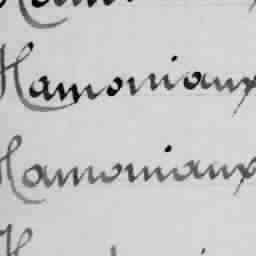 Hamoniaux
Hamoniaux